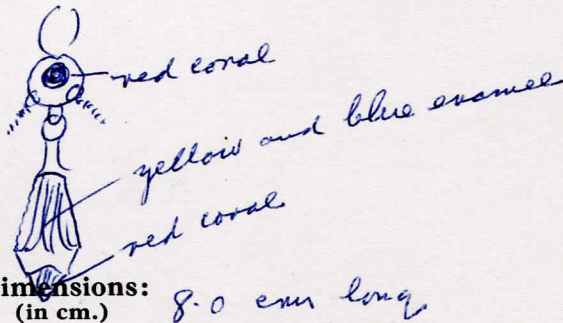 red coral
yellow and blue enamel
red coral
imensions:
(in cm.) 8.0 cms long